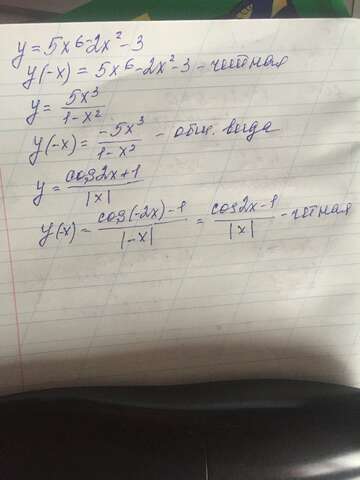 y = 5x⁶ - 2x² - 3
y(-x) = 5x⁶ - 2x² - 3 - четная
y = 5x³ / 1 - x²
y(-x) = -5x³ / 1 - x² - общ. вида
y = cos2x + 1 / |x|
y(-x) = cos(-2x) - 1 / |-x| = cos2x - 1 / |x| - четная